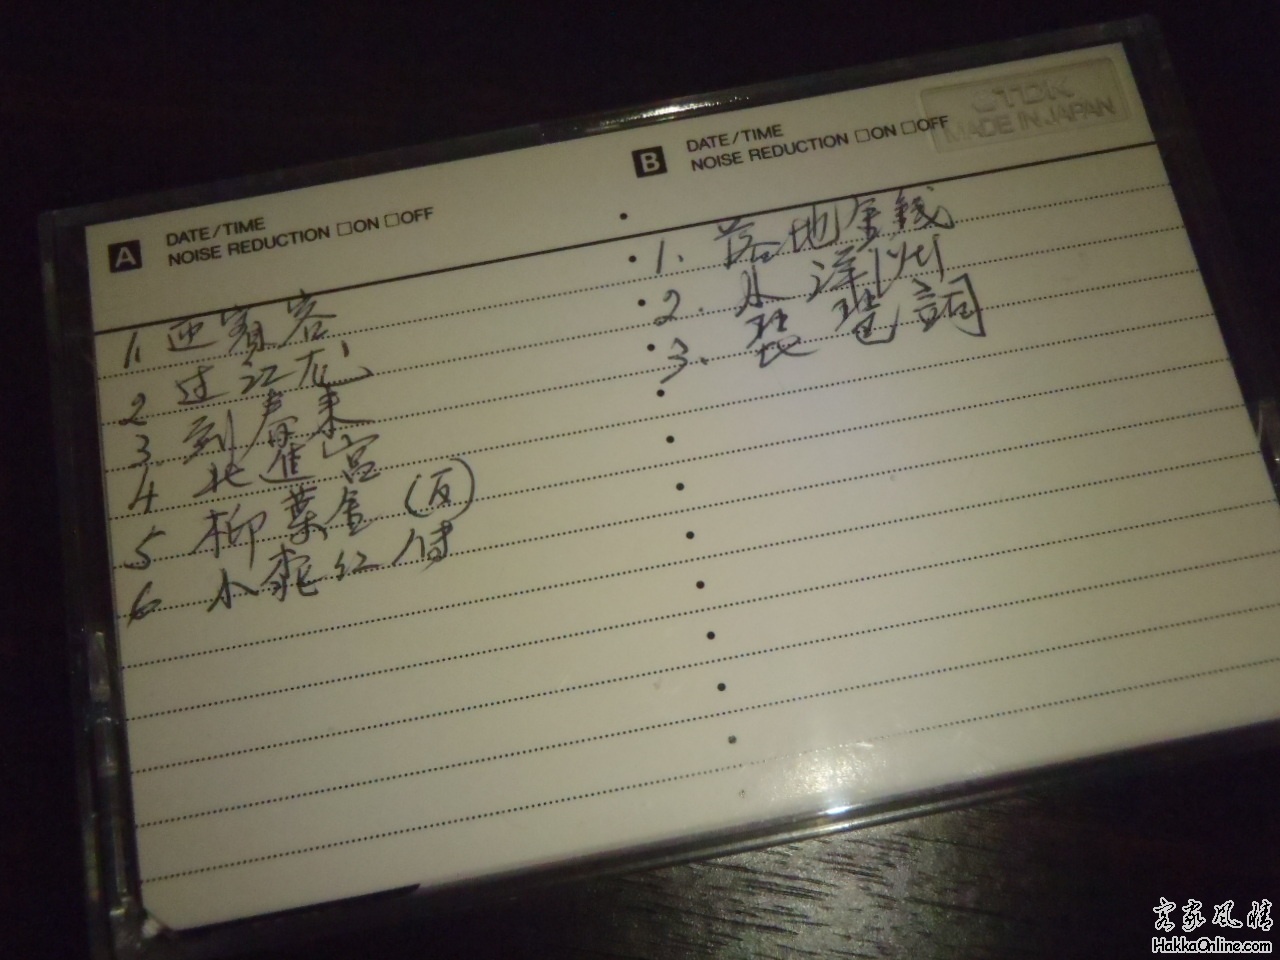 A
DATE/TIME
NOISE REDUCTION □ON □OFF
1. 迎賓客
2 过江龙
3. 到春来
4 北進宮
5 柳葉金 (反)
6 小桃红 傳
B
DATE/TIME
NOISE REDUCTION □ON □OFF
1. 落地金錢
2. 小洋州
3. 琵琶詞
TDK
MADE IN JAPAN
客家風情
HakkaOnline.com